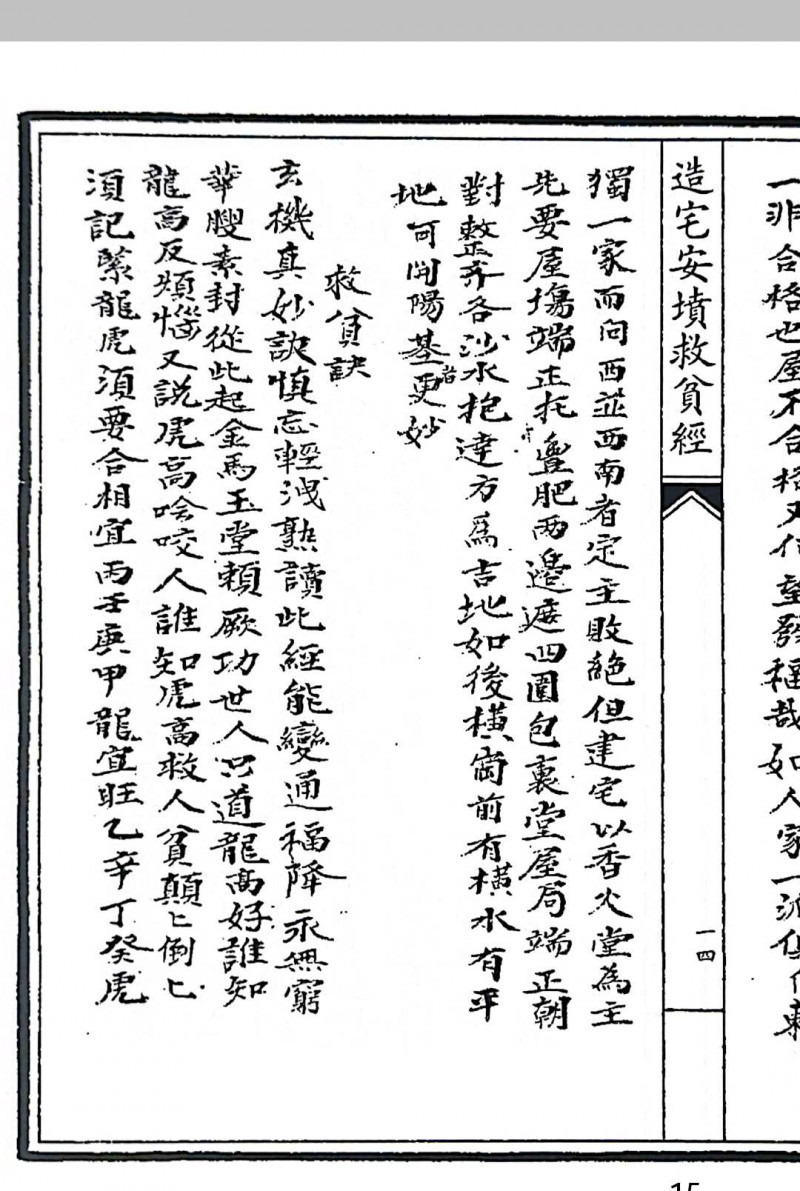 一非合格也屋不合格又何望發福哉如人家一派俱作東
造宅安墳救貧經
一四
獨一家而向西並西南者定主敗絕但建宅以香火堂為主
先要屋塲端正托要肥両邉遮四圍包裹堂屋局端正朝
對整齐各沙水抱達方為吉地如後橫崗前有橫水有平
地可開陽基者更妙
救貧訣
玄機真妙訣慎忘輕洩熟讀此經能變通福降永無窮
華膄素封從此起金馬玉堂賴厥功世人只道龍高好誰知
龍高反煩惱又説虎高啥咬人誰知虎高救人貧顛〻倒〻
須記緊龍虎須要合相宜丙壬庚甲龍宜旺乙辛丁癸虎
15